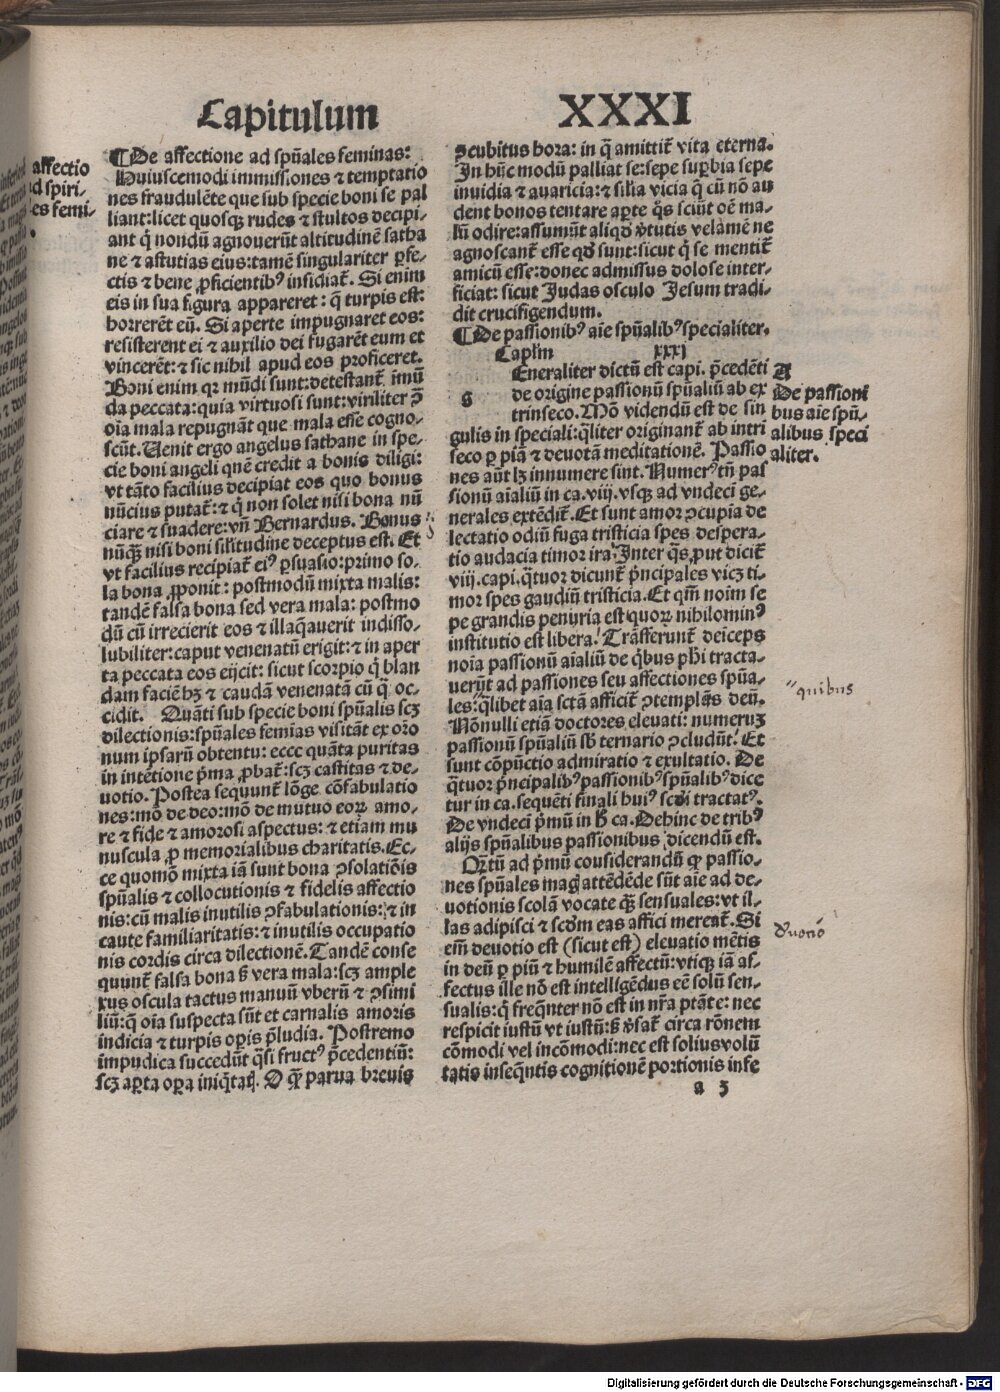 Capitulum XXXI
affectio
d spiri-
es femi-
¶De affectione ad spũales feminas:
Huiuscemodi immissiones ⁊ temptatio
nes fraudulẽte que sub specie boni se pal
liant: licet quosqꝫ rudes ⁊ stultos decipi-
ant q̃ nondũ agnouerũt altitudinẽ satha
ne ⁊ astutias eius: tamẽ singulariter ꝑfe-
ctis ⁊ bene ꝓficientibꝰ insidiat̃. Si enim
eis in sua figura appareret: q̃ turpis est:
horrerẽt eũ. Si aperte impugnaret eos:
resisterent ei ⁊ auxilio dei fugarẽt eum et
vincerẽt: ⁊ sic nihil apud eos proficeret.
Boni enim qꝛ mũdi sunt: detestant̃ imũ
da peccata: quia virtuosi sunt: viriliter ꝯ
oĩa mala repugnãt que mala esse cogno-
scũt. Uenit ergo angelus sathane in spe-
cie boni angeli quẽ credit a bonis diligi:
vt tãto facilius decipiat eos quo bonus
nũcius putat̃: ⁊ q̃ non solet nisi bona nũ
ciare ⁊ suadere: vñ Bernardus. Bonus
nũqꝫ nisi boni silĩtudine deceptus est. Et
vt facilius recipiat̃ eiꝰ ꝑsuasio: primo so-
la bona ꝓponit: postmodũ mixta malis:
tandẽ falsa bona sed vera mala: postmo
dũ cũ irrecierit eos ⁊ illaq̃auerit indisso-
lubiliter: caput venenatũ erigit: ⁊ in aper
ta peccata eos eijcit: sicut scorpio q̃ blan
dam faciẽ hꝫ ⁊ caudã venenatã cũ q̃ oc-
cidit. Quãti sub specie boni spũalis scꝫ
dilectionis: spũales femĩas visitãt ex oro
num ipsarũ obtentu: ecce quãta puritas
in intẽtione p̃ma ꝓbat̃: scꝫ castitas ⁊ de-
uotio. Postea sequunt̃ lõge cõfabulatio
nes: mõ de deo: mõ de mutuo eoꝝ amo-
re ⁊ fide ⁊ amorosi aspectus: ⁊ etiam mu
nuscula ꝓ memorialibus charitatis. Ec-
ce quomõ mixta iã sunt bona ꝯsolatiõis
spũalis ⁊ collocutionis ⁊ fidelis affectio
nis: cũ malis inutilis ꝯfabulationis: ⁊ in
caute familiaritatis: ⁊ inutilis occupatio
nis cordis circa dilectionẽ. Tandẽ conse
quunt̃ falsa bona s̃ vera mala: scꝫ ample
xus oscula tactus manuũ vberũ ⁊ ꝯsimi
liũ: q̃ oĩa suspecta sũt et carnalis amoris
indicia ⁊ turpis oꝑis p̃ludia. Postremo
impudica succedũt q̃si fructꝰ p̃cedentiũ:
scꝫ aꝑta oꝑa iniq̃tat̃. O q̃ꝫ parua breuis
ꝯcubitus hora: in q̃ amittit̃ vita eterna.
In hũc modũ palliat se: sepe suꝑbia sepe
inuidia ⁊ auaricia: ⁊ silĩa vicia q̃ cũ nõ au
dent bonos tentare aꝑte q̃s sciũt oẽ ma-
lũ odire: assumũt aliqd̃ ṽtutis velamẽ ne
agnoscant̃ esse qd̃ sunt: sicut q̃ se mentit̃
amicũ esse: donec admissus dolose inter-
ficiat: sicut Judas osculo Jesum tradi-
dit crucifigendum.
¶De passionibꝰ aĩe spũalibꝰ specialiter.
Caplm̃ xxxi
g
Eneraliter dictũ est capi. p̃cedẽti
de origine passionũ spũaliũ ab ex
trinseco. Mõ videndũ est de sin
gulis in speciali: q̃liter originant̃ ab intri
seco ꝑ piã ⁊ deuotã meditationẽ. Passio
nes aũt lꝫ innumere sint. Numerꝰ tñ pas
sionũ aĩaliũ in ca. viij. vsqꝫ ad vndeci ge-
nerales extẽdit̃. Et sunt amor ꝯcupĩa de
lectatio odiũ fuga tristicia spes despera-
tio audacia timor ira. Inter q̃s ꝓut dicit̃
viij. capi. q̃tuor dicunt̃ p̃ncipales vicꝫ ti-
mor spes gaudiũ tristicia. Et qm̃ noĩm se
pe grandis penuria est quoꝝ nihilominꝰ
institutio est libera. Trãsferunt̃ deiceps
noĩa passionũ aĩaliũ de q̃bus ph̃i tracta-
uerũt ad passiones seu affectiones spũa-
les: q̃libet aĩa sctã afficit̃ ꝯtemplãs deũ.
Nõnulli etiã doctores eleuati: numeruꝫ
passionũ spũaliũ sb̃ ternario ꝯcludũt. Et
sunt cõpũctio admiratio ⁊ exultatio. De
q̃tuor p̃ncipalibꝰ passionibꝰ spũalibꝰ dice
tur in ca. sequẽti finali huiꝰ scdi tractatꝰ.
De vndeci p̃mũ in h̃ ca. Dehinc de tribꝰ
alijs spũalibus passionibus dicendũ est.
Qr̃tũ ad p̃mũ considerandũ ꝙ passio-
nes spũales mag̃ attẽdẽde sũt aĩe ad de-
uotionis scolã vocate q̃ꝫ sensuales: vt il-
las adipisci ⁊ scdm eas affici mereat̃. Si
em̃ deuotio est (sicut est) eleuatio mẽtis
in deũ ꝑ piũ ⁊ humilẽ affectũ: vtiqꝫ iã af-
fectus ille nõ est intelligẽdus eẽ solũ sen-
sualis: q̃ freq̃nter nõ est in nr̃a ptãte: nec
respicit iustũ vt iustũ: s̃ ṽsat̃ circa rõnem
cõmodi vel incõmodi: nec est solius volũ
tatis inseq̃ntis cognitionẽ portionis infe
a 3
A
De passioni
bus aĩe spũ-
alibus speci
aliter.
quibus